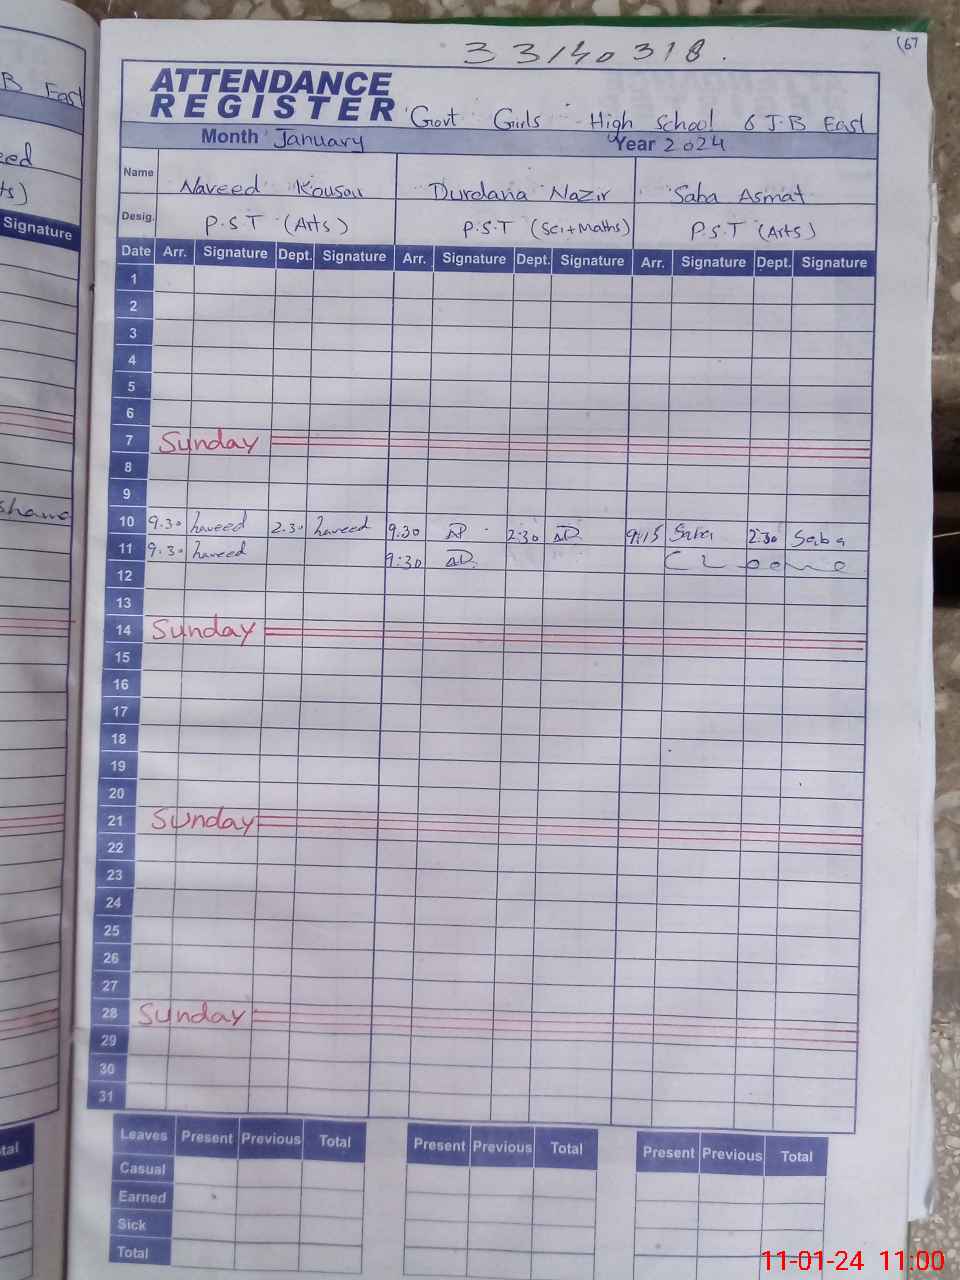 33140318.
(67
ATTENDANCE
REGISTER
Govt Girls High School 6 J.B East
Month January Year 2024
Name Naveed Kousar Durdana Nazir Saba Asmat
Desig. P.S.T (Arts) P.S.T (Sci+Maths) P.S.T (Arts)
Date Arr. Signature Dept. Signature Arr. Signature Dept. Signature Arr. Signature Dept. Signature
1
2
3
4
5
6
7 Sunday
8
9
10 9.30 naveed 2.30 naveed 9.30 2:30 9:15 Saba 2:30 Saba
11 9.30 naveed 9:30
12
13
14 Sunday
15
16
17
18
19
20
21 Sunday
22
23
24
25
26
27
28 Sunday
29
30
31
Leaves Present Previous Total Present Previous Total Present Previous Total
Casual
Earned
Sick
Total
B East
Signature
11-01-24 11:00